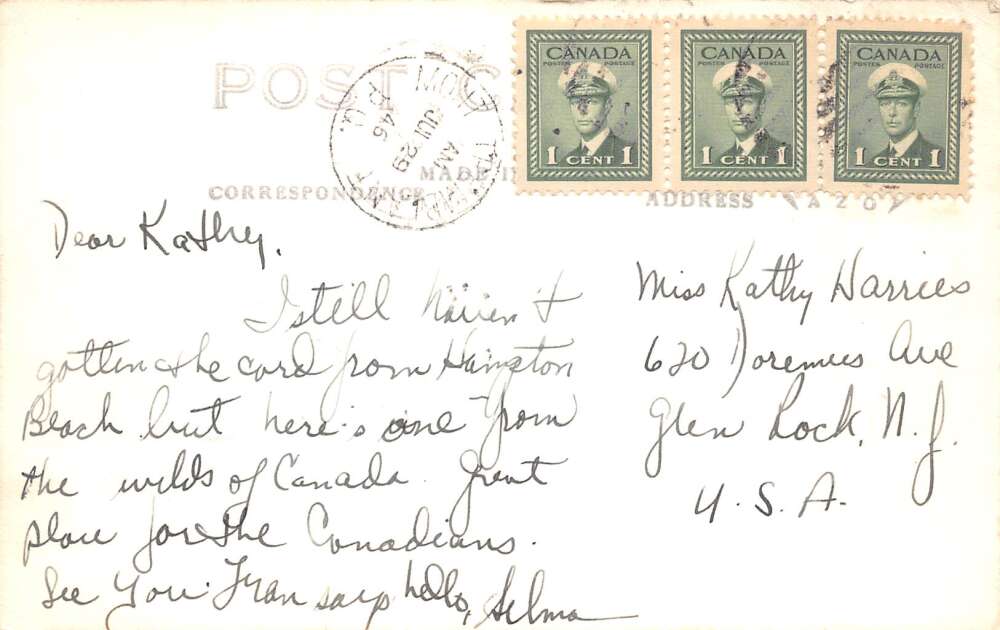 POST C
CANADA
POSTES POSTAGE
1 CENT 1
CANADA
POSTES POSTAGE
1 CENT 1
CANADA
POSTES POSTAGE
1 CENT 1
MONT
AM
JUL 29
46
P.Q.
MADE I
CORRESPONDENCE
ADDRESS
AZO
Dear Kathy,
I still haven't
gotten the card from Hampton
Beach but here's one from
the wilds of Canada. Great
place for the Canadians.
See you. Fran says hello, Selma
Miss Kathy Harries
620 Doremus Ave
Glen Rock, N.J.
U.S.A.